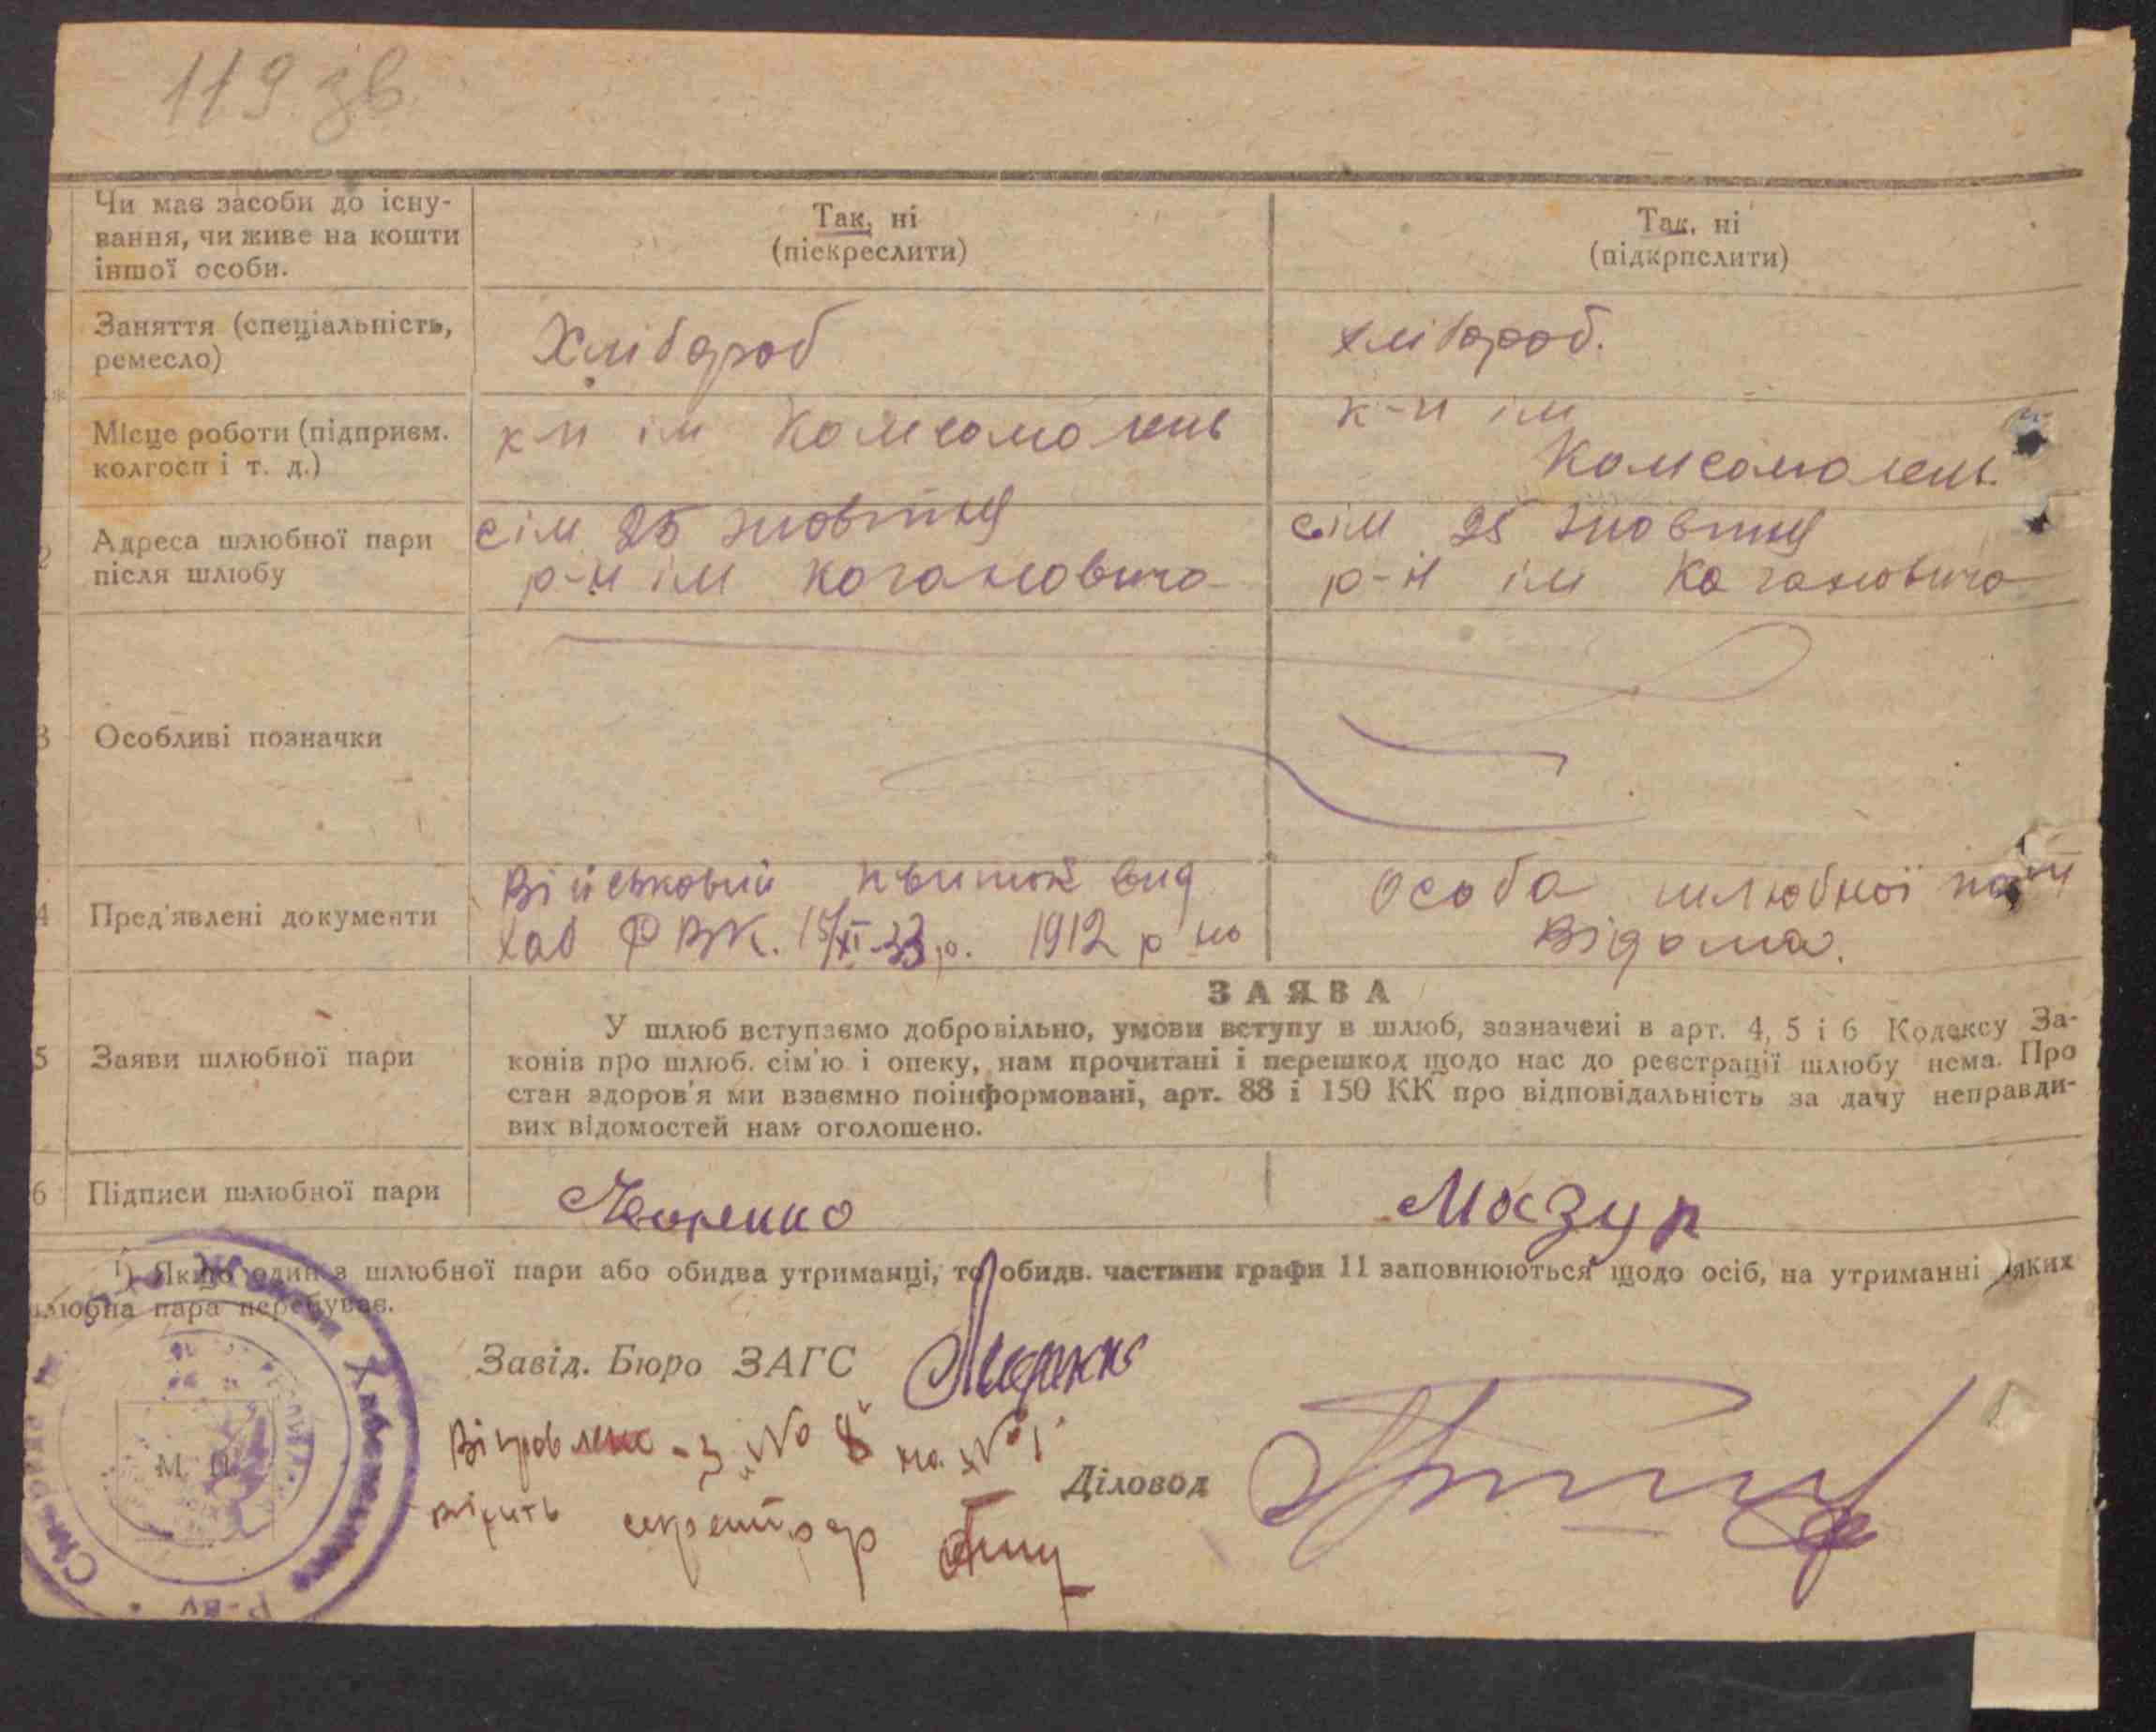 119 зв.
Чи має засоби до існу-
вання, чи живе на кошти
іншої особи.
Так, ні
(піекреслити)
Так, ні
(підкрпслити)
Заняття (спеціальність,
ремесло)
Хлібороб
хлібороб.
Місце роботи (підприєм.
колгосп і т. д.)
к-п ім Комсомолець
к-п ім
Комсомолець.
2 Адреса шлюбної пари
після шлюбу
сім 25 жовтня
р-н ім Кагановича
сім 25 жовтня
р-н ім Кагановича
3 Особливі позначки
4 Пред'явлені документи
Військовий квиток вид
Хаб РВК. 15/XI-33 р. 1912 р но
Особа шлюбної пари
Відома.
ЗАЯВА
5 Заяви шлюбної пари
У шлюб вступаємо добровільно, умови вступу в шлюб, зазначені в арт. 4, 5 і 6 Кодексу За-
конів про шлюб. сім'ю і опеку, нам прочитані і перешкод щодо нас до реєстрації шлюбу нема. Про
стан здоров'я ми взаємно поінформовані, арт. 88 і 150 КК про відповідальність за дачу неправди-
вих відомостей нам оголошено.
6 Підписи шлюбної пари
Мазур
1) Якщо один з шлюбної пари або обидва утриманці, то обидв. частини графи 11 заповнюються щодо осіб, на утриманні яких
шлюбна пара перебуває.
Завід. Бюро ЗАГС
М. П.
Віправлено - з „№ 8" на „№ 1"
Діловод
вірить секретар